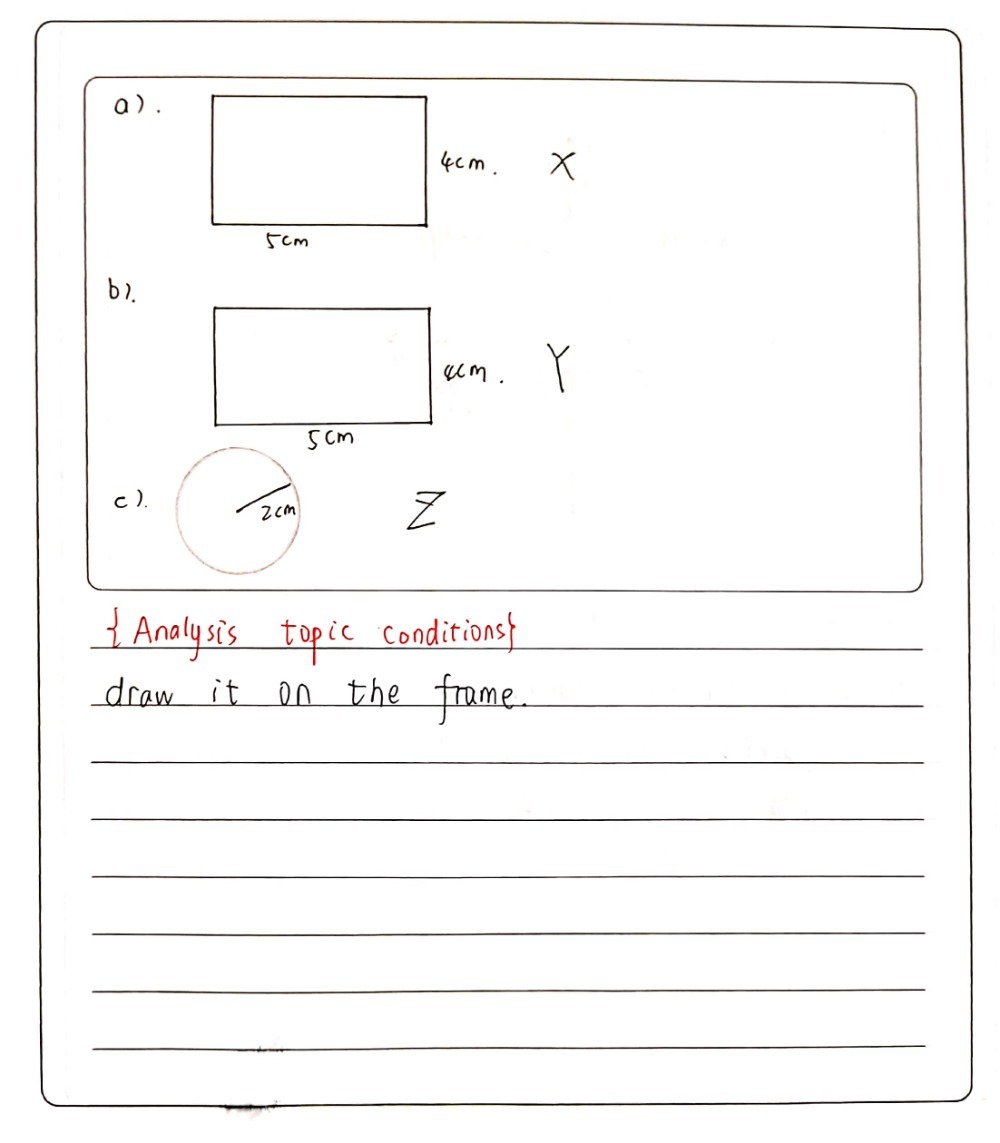 a).
4cm. X
5cm
b).
4cm. Y
5cm
c). 2cm Z
{Analysis topic conditions}
draw it on the frame.